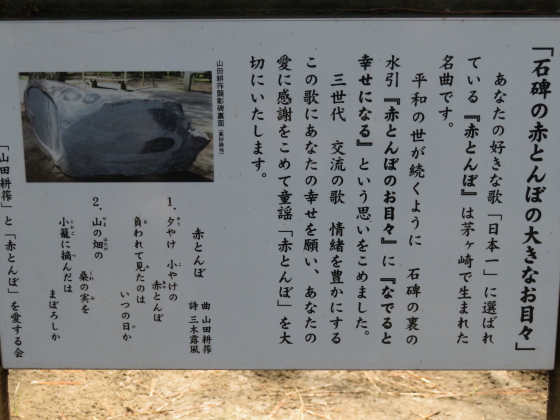 「石碑の赤とんぼの大きなお目々」
あなたの好きな歌「日本一」に選ばれ
ている『赤とんぼ』は茅ヶ崎で生まれた
名曲です。
平和の世が続くように 石碑の裏の
水引『赤とんぼのお目々』に『なでると
幸せになる』という思いをこめました。
三世代 交流の歌 情緒を豊かにする
この歌にあなたの幸せを願い、あなたの
愛に感謝をこめて童謡「赤とんぼ」を大
切にいたします。
山田耕筰顕彰碑裏面
赤とんぼ
曲 山田耕筰
詩 三木露風
1. 夕やけ 小やけの
赤とんぼ
負われて見たのは
いつの日か
2. 山の畑の
桑の実を
小籠に摘んだは
まぼろしか
「山田耕筰」と「赤とんぼ」を愛する会